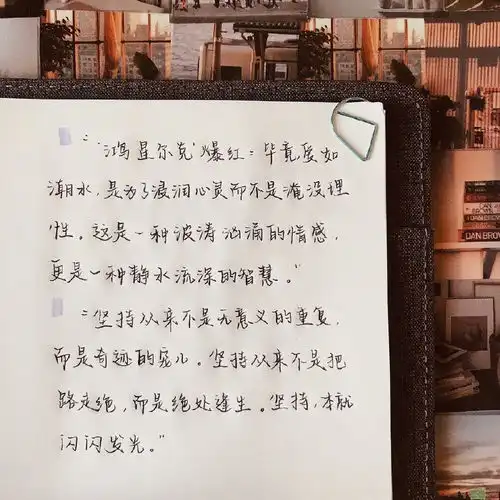 “‘鸿星尔克’爆红：毕竟爱如
潮水，是为了浸润心灵而不是淹没理
性。这是一种波涛汹涌的情感，
更是一种静水流深的智慧。”
“坚持从来不是无意义的重复，
而是奇迹的宠儿。坚持从来不是把
路走绝，而是绝处逢生。坚持，本就
闪闪发光。”
DAN BROW